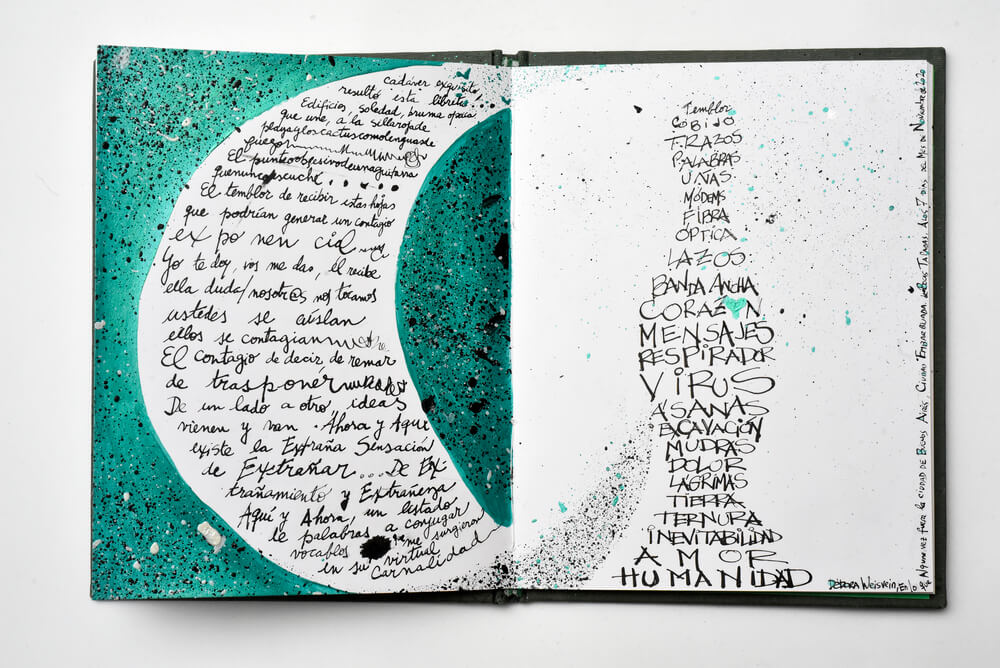 cadáver exquisito
resultó esta libreta
Edificios, soledad, bruma opaca
que une, a la sillaroja de
playa y los cactus como lenguas de
fuego
El punteo obsesivo de una guitarra
que nunca escuché.....
El temblor de recibir estas hojas
que podrían generar un contagio
ex po nen cial
Yo te doy, vos me das, él recibe
ella duda/nosotr@s nos tocamos
ustedes se aíslan
ellos se contagian
El contagio de decir, de remar
de trasponer
De un lado a otro, ideas
vienen y van. Ahora y Aquí
existe la Extraña Sensación
de Extrañar... De Ex-
trañamiento y Extrañeza
Aquí y Ahora, un listado
de palabras a conjugar
vocablos me surgieron
en su virtual
carnalidad
Temblor
CóBIJO
TRAZOS
PALABRAS
UÑAS
MÓDEMS
FIBRA
ÓPTICA
LAZOS
BANDA ANCHA
CORAZÓN
MENSAJES
RESPIRADOR
VIRUS
ÁSANAS
EXCAVACIÓN
MUDRAS
DOLOR
LÁGRIMAS
TIERRA
TERNURA
INEVITABILIDAD
AMOR
HUMANIDAD
DÉBORA WEISVEIN, En lo
que Alguna vez fuera la CIUDAD DE BUENOS AIRES, CIUDAD EMBARBIJADA, de Bocas TAPADAS, A los 7 DÍAS DEL MES DE NOVIEMBRE DE 2020